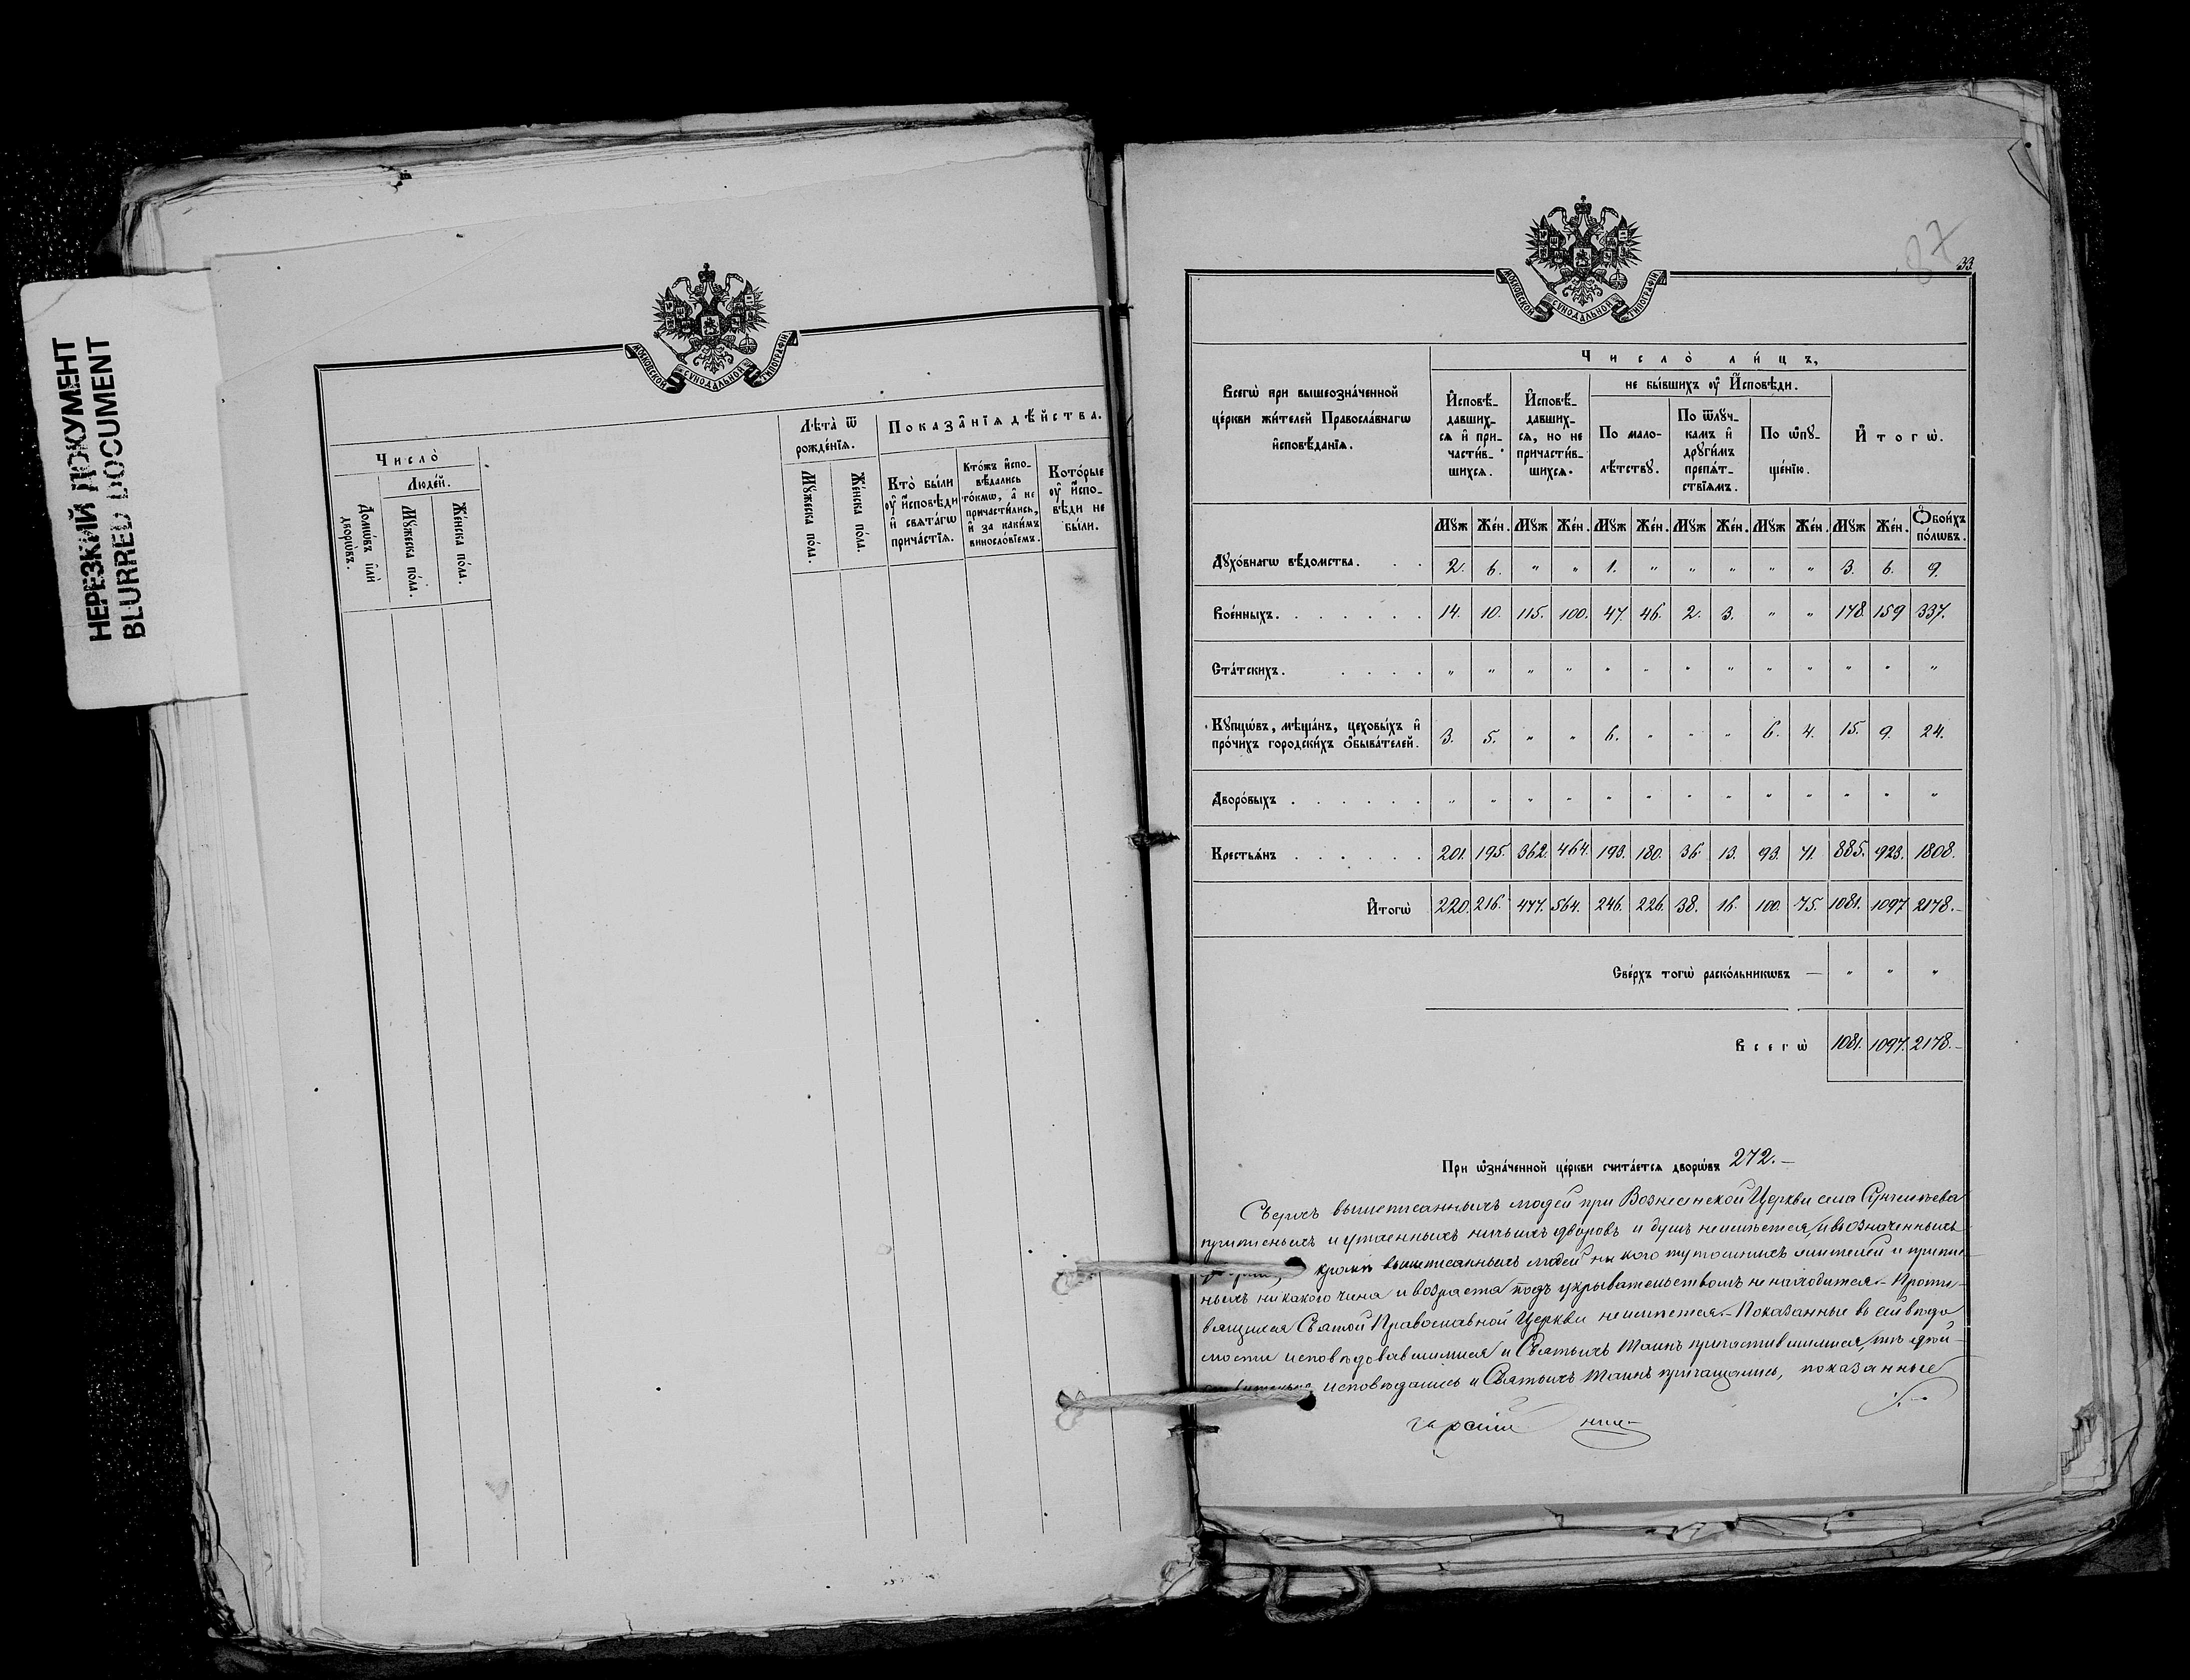 НЕРЕЗКИЙ ДОКУМЕНТ
BLURRED DOCUMENT
МОСКОВСКОЙ СѴНОДАЛЬНОЙ ТИПОГРАФІИ
Число̀
Люде́й.
Домѡ́въ и҆лѝ дворѡ́въ.
Мꙋжеска по́ла.
Же́нска по́ла.
Лѣ́та ѿ рожде́нїѧ.
Мꙋжеска по́ла.
Же́нска по́ла.
Показа̑нїѧ дѣ́йства.
Кто̀ бы́ли ᲂу҆ и҆́сповѣди и҆ свѧта́гѡ прича́стїѧ.
Кто́жъ и҆спо-
вѣ́дались
то́кмѡ, а҆ не
причасти́лись,
и҆ за каки́мъ
винослові́емъ.
Кото́рые ᲂу҆ и҆́спо-
вѣди не
бы́ли.
87
33
МОСКОВСКОЙ СѴНОДАЛЬНОЙ ТИПОГРАФІИ
Всегѡ̀ при вышеозна́ченной
це́ркви жи́телей Правосла́внагѡ
и҆сповѣ́данїѧ.
Число̀ ли́цъ,
И҆сповѣ́-
давших-
сѧ и҆ при-
части́в-
шихсѧ.
И҆сповѣ́-
давших-
сѧ, но не
причасти́в-
шихсѧ.
не бы́вшихъ ᲂу҆ И҆́сповѣди.
По мало-
лѣ́тствꙋ.
По ѿлꙋ́ч-
камъ и҆
дрꙋги̑мъ
препѧ́т-
ствїѧмъ.
По ѡ҆пꙋ-
ще́нїю.
И҆тогѡ̀.
Мꙋж Же́н. Мꙋж Же́н. Мꙋж Же́н. Мꙋж Же́н. Мꙋж Же́н. Мꙋж Же́н. Ѻ҆бои́хъ по́лѡвъ.
Дꙋхо́внагѡ вѣ́домства. . . 2. 6. „ „ 1. „ „ „ „ „ 3. 6. 9.
Вое́нныхъ. . . . . . . 14. 10. 115. 100. 47. 46. 2. 3. „ „ 178. 159 337.
Ста́тскихъ. . . . . „ „ „ „ „ „ „ „ „ „ „ „ „
Кꙋпцѡ́въ, мѣща́нъ, цеховы́хъ и҆
про́чихъ городски́хъ ѻ҆быва́телей. 3. 5. „ „ 6. „ „ „ 6. 4. 15. 9. 24.
Дворо́выхъ . . . . . . „ „ „ „ „ „ „ „ „ „ „ „ „
Крестьѧ́нъ . . . . . . 201. 195. 362. 464. 193. 180. 36. 13. 93. 71. 885. 923. 1808.
И҆тогѡ̀ 220. 216. 477. 564. 246. 226. 38. 16. 100. 75. 1081. 1097 2178.–
Све́рхъ тогѡ̀ раско́льникѡвъ — „ „ „
Всегѡ̀ 1081. 1097. 2178.–
При ѡ҆зна́ченной це́ркви счита́етсѧ дворѡ́въ 272.–
Сверхъ вышеписанныхъ людей при Вознесенской Церкви села
и утаенныхъ ничьихъ дворовъ и душъ неимѣется, и въ означенныхъ
кромѣ вышеписанныхъ людей ни кого тутошнихъ жителей и
ныхъ никакого чина и возраста подъ укрывательствомъ не находится.– Проти-
вящихся Святой Православной Церкви неимѣется.– Показанные въ сей вѣдо
мости исповѣдовавшимися и Святыхъ Таинъ причастившимися, тѣ дѣй-
ствительно исповѣдались и Святыхъ Таинъ причащались, показанные